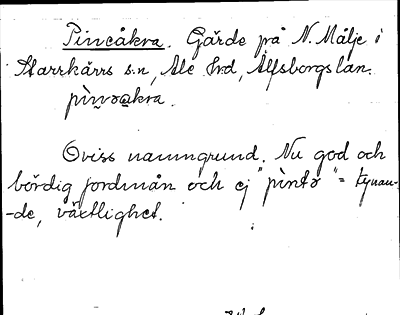 Pineåkra. Gärde på N. Målje i
Starrkärrs s:n, Ale hrd, Älfsborgs län.
pìnəakra.
Oviss namngrund. Nu god och
bördig jordmån och ej "pìntə" = tynan-
-de, växtlighet.